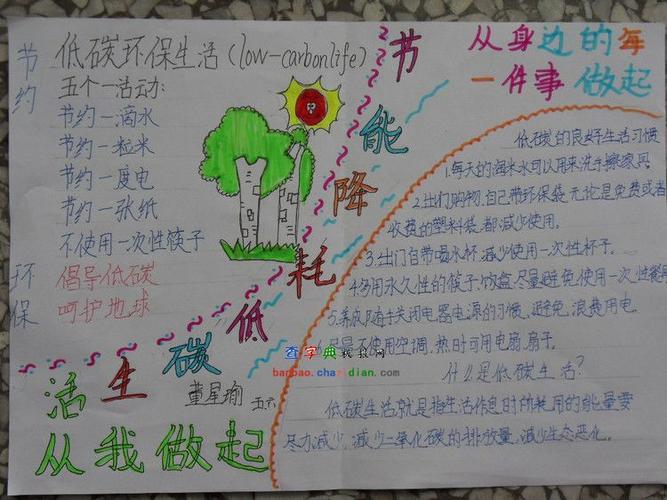 节约
环保
低碳环保生活(low-carbonlife)
五个一活动:
节约一滴水
节约一粒米
节约一度电
节约一张纸
不使用一次性筷子
倡导低碳
呵护地球
节能降耗低碳生活
从我做起
董星瑜 五六
从身边的每
一件事做起
低碳的良好生活习惯
1.每天的淘米水可以用来洗手擦家具
2.出门购物,自己带环保袋,无论是免费或者
收费的塑料袋,都减少使用。
3.出门自带喝水杯,减少使用一次性杯子。
4.多用永久性的筷子、饭盒,尽量避免使用一次性餐
5.养成随手关闭电器电源的习惯,避免浪费用电。
尽量不使用空调,热时可用电扇、扇子。
什么是低碳生活?
低碳生活就是指生活作息时所耗用的能量要
尽力减少,减少二氧化碳的排放量,减少生态恶化。
查字典教教网
banbao.chazidian.com